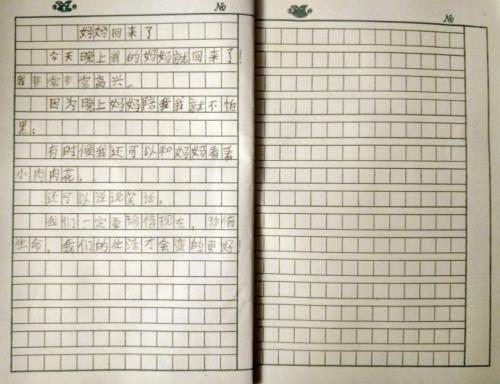 No
No
妈妈回来了
今天晚上我的妈妈就回来了!
我非常非常高兴。
因为晚上妈妈陪我我就不怕
黑;
有时候我还可以和妈妈看看
小肉肉花。
还可以说说笑话。
我们一定要珍惜现在,珍惜
生命,我们的生活才会变的更好!